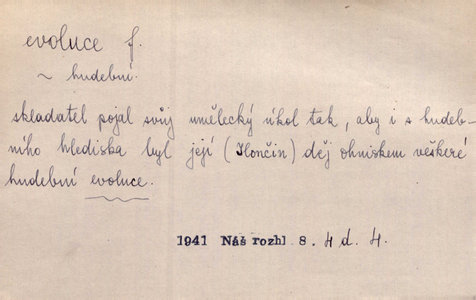 evoluce f.
~ hudební.
skladatel pojal svůj umělecký úkol tak, aby i s hudeb-
ního hlediska byl její (Ilončin) děj ohniskem veškeré
hudební evoluce.
1941 Náš rozhl 8. 4 d. 4.